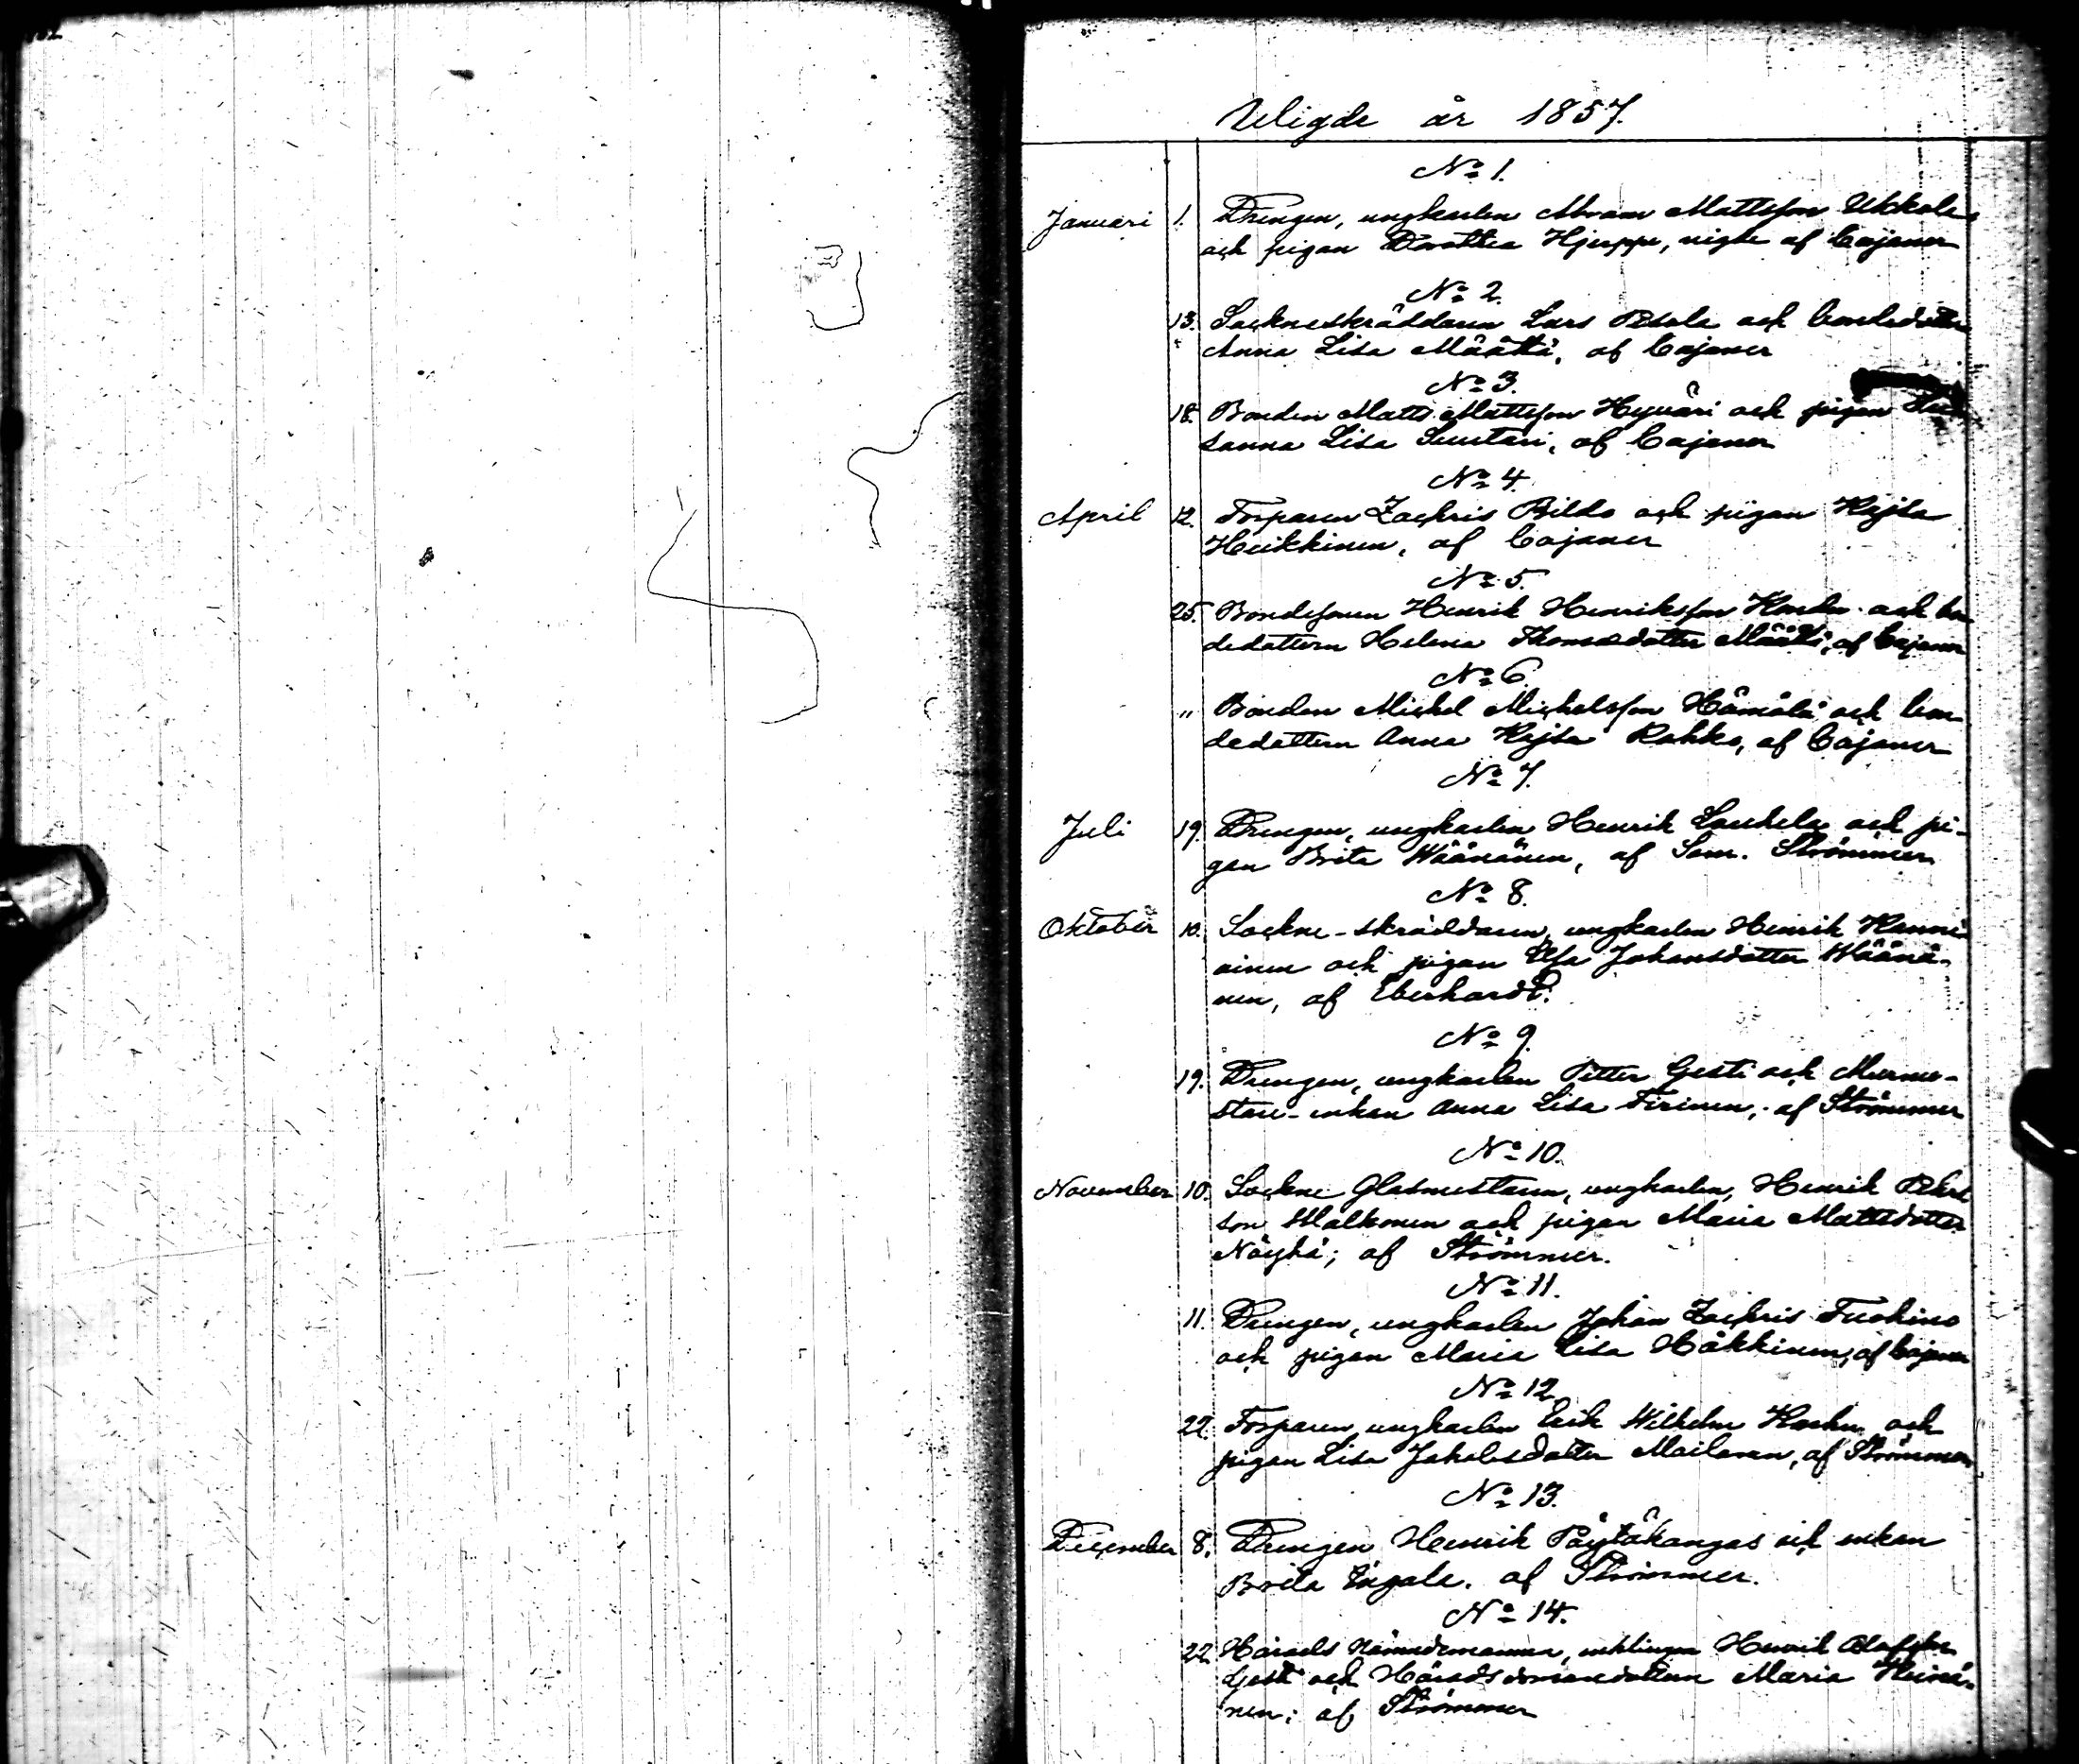 Wigde år 1857.
No 1.
Januari 1. Drengen, ungkarlen Abram Mattsson Ukkola
och pigan Dorothea Hjuppi, vigde af Cajaner
No 2.
13. Sockneskräddaren Lars Pesola och bondedottren
Anna Lisa Määttä, af Cajaner
No 3.
18. Bonden Matts Mattsson Hyväri och pigan Su-
sanna Lisa Suutari, af Cajaner
No 4.
April 12. Torparen Zachris Pildo och pigan Kajsa
Heikkinen, af Cajaner
No 5.
25. Bondesonen Henrik Henriksson och bon-
dedottern Helena Thomasdotter Määttä, af Cajaner
No 6.
" Bonden Michel Michelsson Hämälä och bon-
dedottern Anna Kajsa Rahko, af Cajaner
No 7.
Juli 19. Drengen, ungkarlen Henrik Laukela och pi-
gan Brita Wäänänen, af Sam. Strömmer
No 8.
Oktober 10. Sockne-skräddaren, ungkarlen Henrik Hanni-
ainen och pigan Elsa Johansdotter Wäänä-
nen, af Eberhardt.
No 9.
19. Drengen, ungkarlen Petter Gesti och Murme-
stare-enkan Anna Lisa Tirinen, af Strömmer
No 10.
November 10. Sockne Glasmestaren, ungkarlen, Henrik Pehrs
son Malkonen och pigan Maria Mattsdotter
Näyhä; af Strömmer.
No 11.
11. Drengen, ungkarlen Johan Zachris Tuohino
och pigan Maria Lisa Häkkinen, af Cajaner
No 12.
22. Torparen, ungkarlen Erik Wilhelm och
pigan Lisa Jakobsdotter Mailanen, af Strömmer
No 13.
December 8. Drengen Henrik Pöytäkangas och enkan
Brita Ängala. af Strömmer.
No 14.
22. Härads Nämndemannen, enklingen Henrik Olofsson
Gesti och Häradsdomaredottern Maria Heinä-
nen; af Strömmer